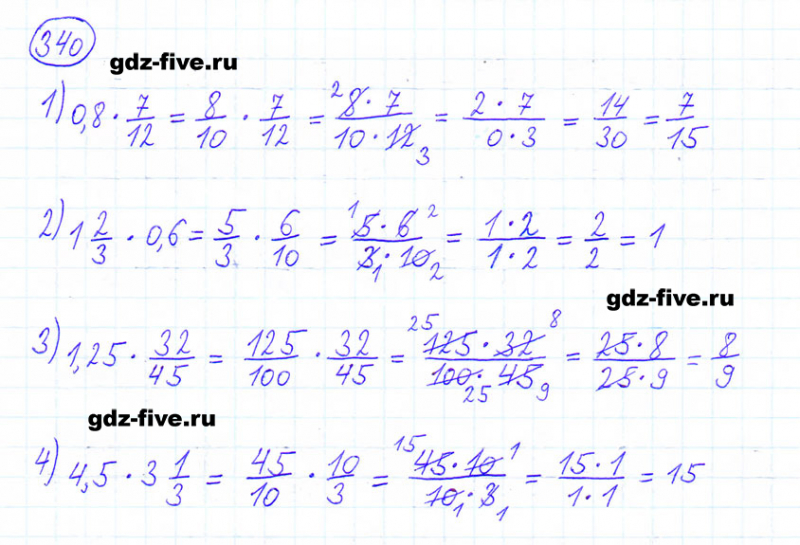 340
gdz-five.ru
1) 0,8 · 7/12 = 8/10 · 7/12 = ²8 · 7/10 · 12₃ = 2 · 7/0 · 3 = 14/30 = 7/15
2) 1 2/3 · 0,6 = 5/3 · 6/10 = ¹5 · 6²/3₁ · 10₂ = 1 · 2/1 · 2 = 2/2 = 1
gdz-five.ru
3) 1,25 · 32/45 = 125/100 · 32/45 = ²⁵125 · 32⁸/100₂₅ · 45₉ = 25 · 8/25 · 9 = 8/9
gdz-five.ru
4) 4,5 · 3 1/3 = 45/10 · 10/3 = ¹⁵45 · 10¹/10₁ · 3₁ = 15 · 1/1 · 1 = 15